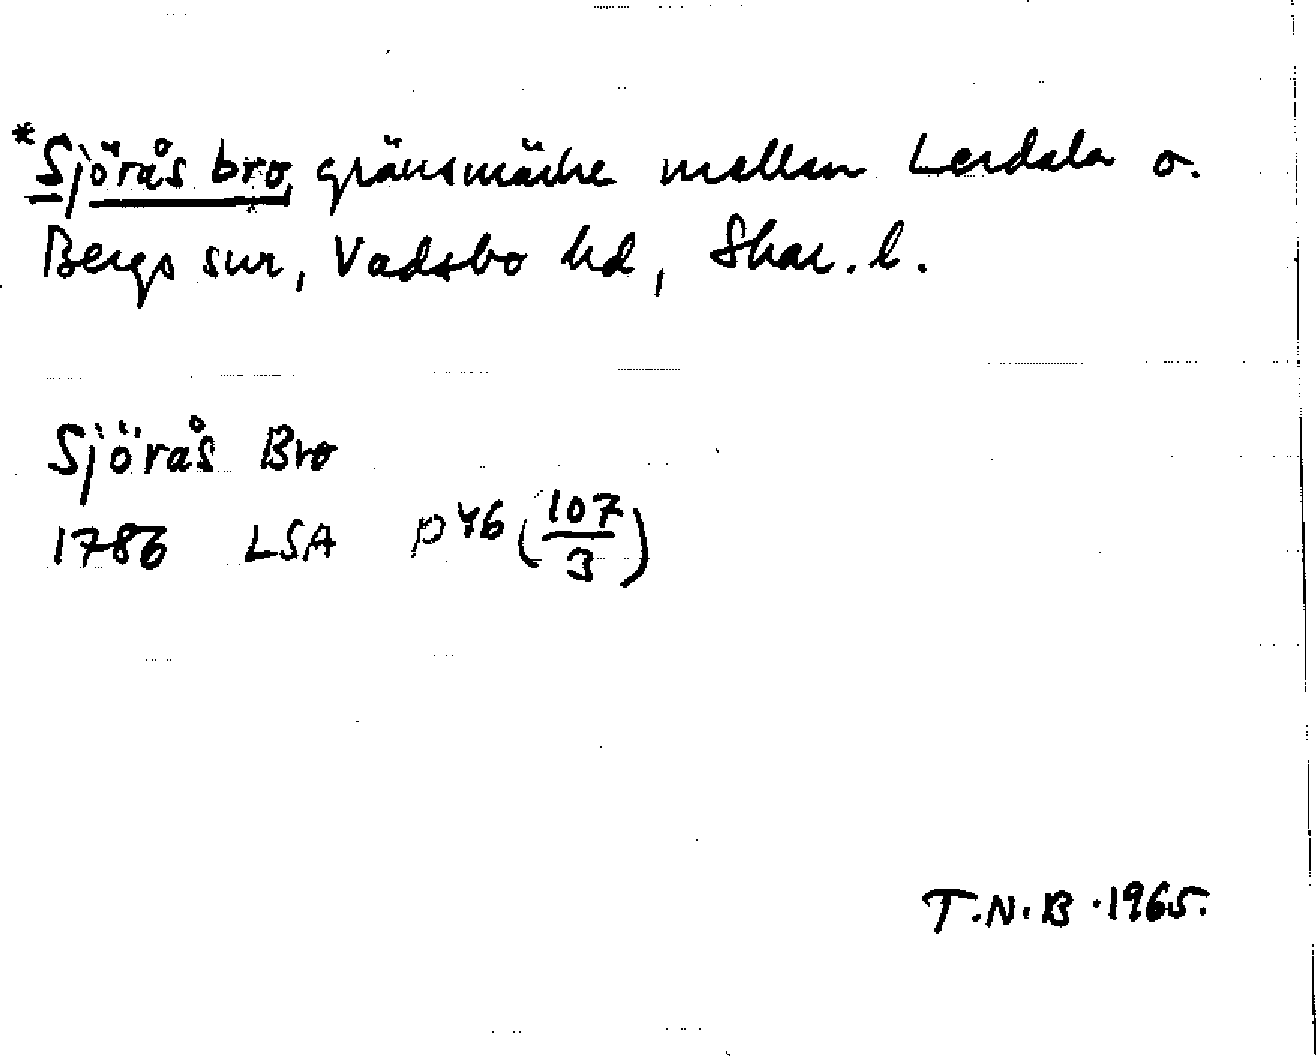 *Sjörås bro, gränsmärke mellan Lerdala o.
Bergs snr, Vadsbo hd, Skar. l.
Sjörås Bro
1786 LSA P 46 (107/3)
T.N.B. 1965.